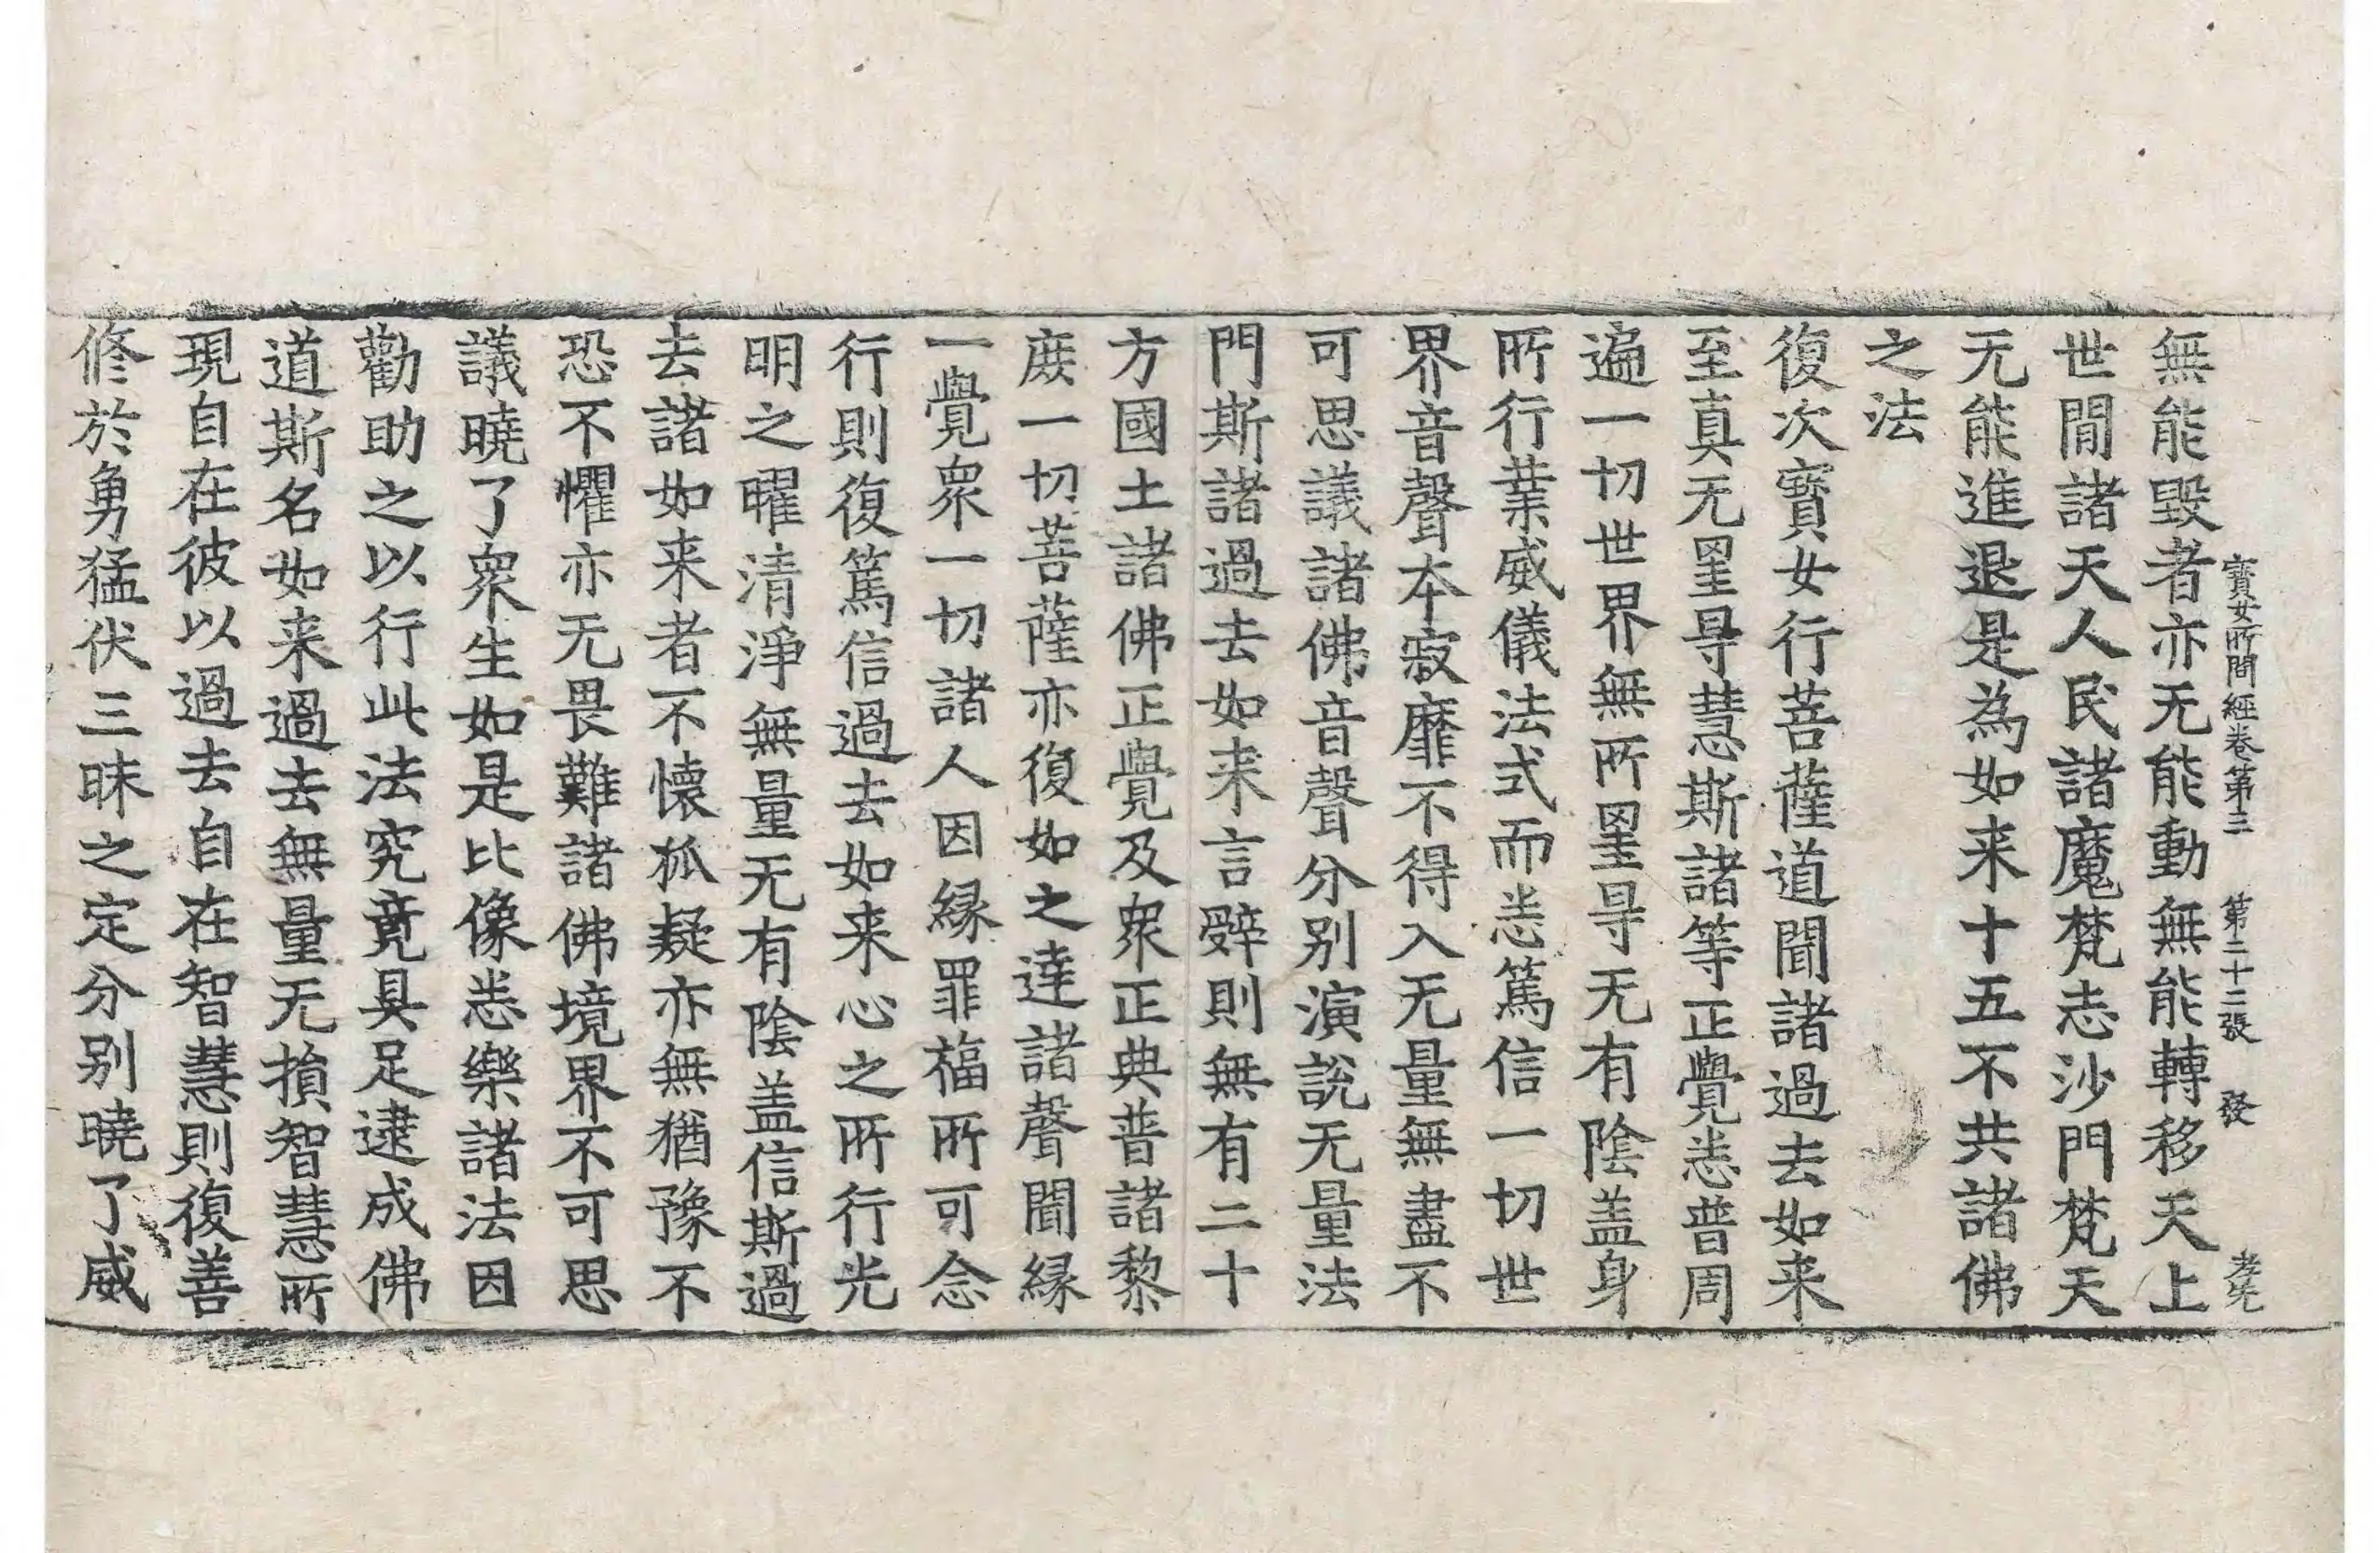 寶女所問經卷第三　第二十二張　發　孝先
無能毀者亦无能動無能轉移天上
世閒諸天人民諸魔梵志沙門梵天
无能進退是為如来十五不共諸佛
之法
復次寶女行菩薩道聞諸過去如来
至真无罣㝵慧斯諸等正覺悉普周
遍一切世界無所罣㝵无有陰盖身
所行行業威儀法式而悉篤信一切世
界音聲本寂靡不得入无量無盡不
可思議諸佛音聲分别演說无量法
門斯諸過去如来言辭則無有二十
方國土諸佛正覺及衆正典普諸黎
庶一切菩薩亦復如之達諸聲聞緣
一覺衆一切諸人因緣罪福所可念
行則復篤信過去如来心之所行光
明之曜清淨無量无有陰盖信斯過
去諸如来者不懷狐疑亦無猶豫不
恐不懼亦无畏難諸佛境界不可思
議曉了衆生如是比像悉樂諸法因
勸助之以行此法究竟具足逮成佛
道斯名如来過去無量无損智慧所
現自在彼以過去自在智慧則復善
修於勇猛伏三昧之定分别曉了威